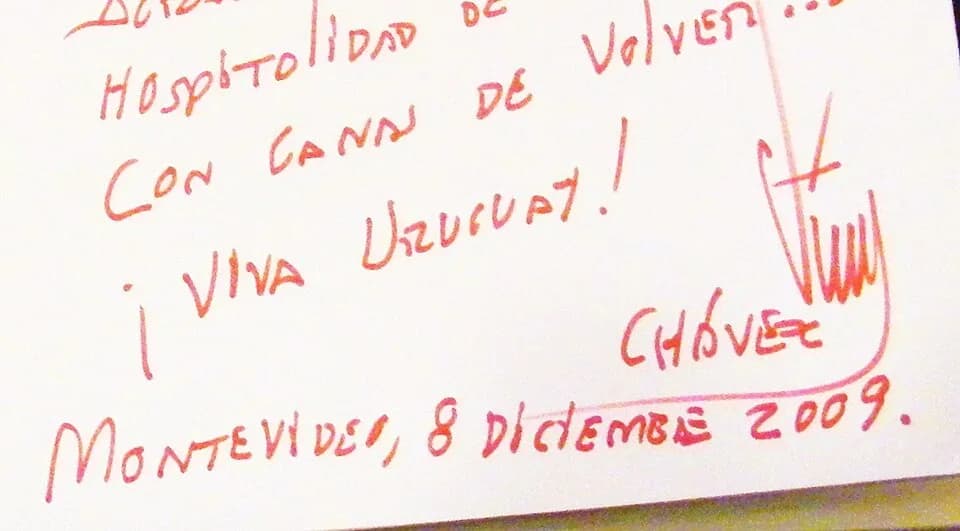 HOSPITALIDAD DE
CON GANAS DE VOLVER...
¡VIVA URUGUAY!
CHÁVEZ
MONTEVIDEO, 8 DICIEMBRE 2009.